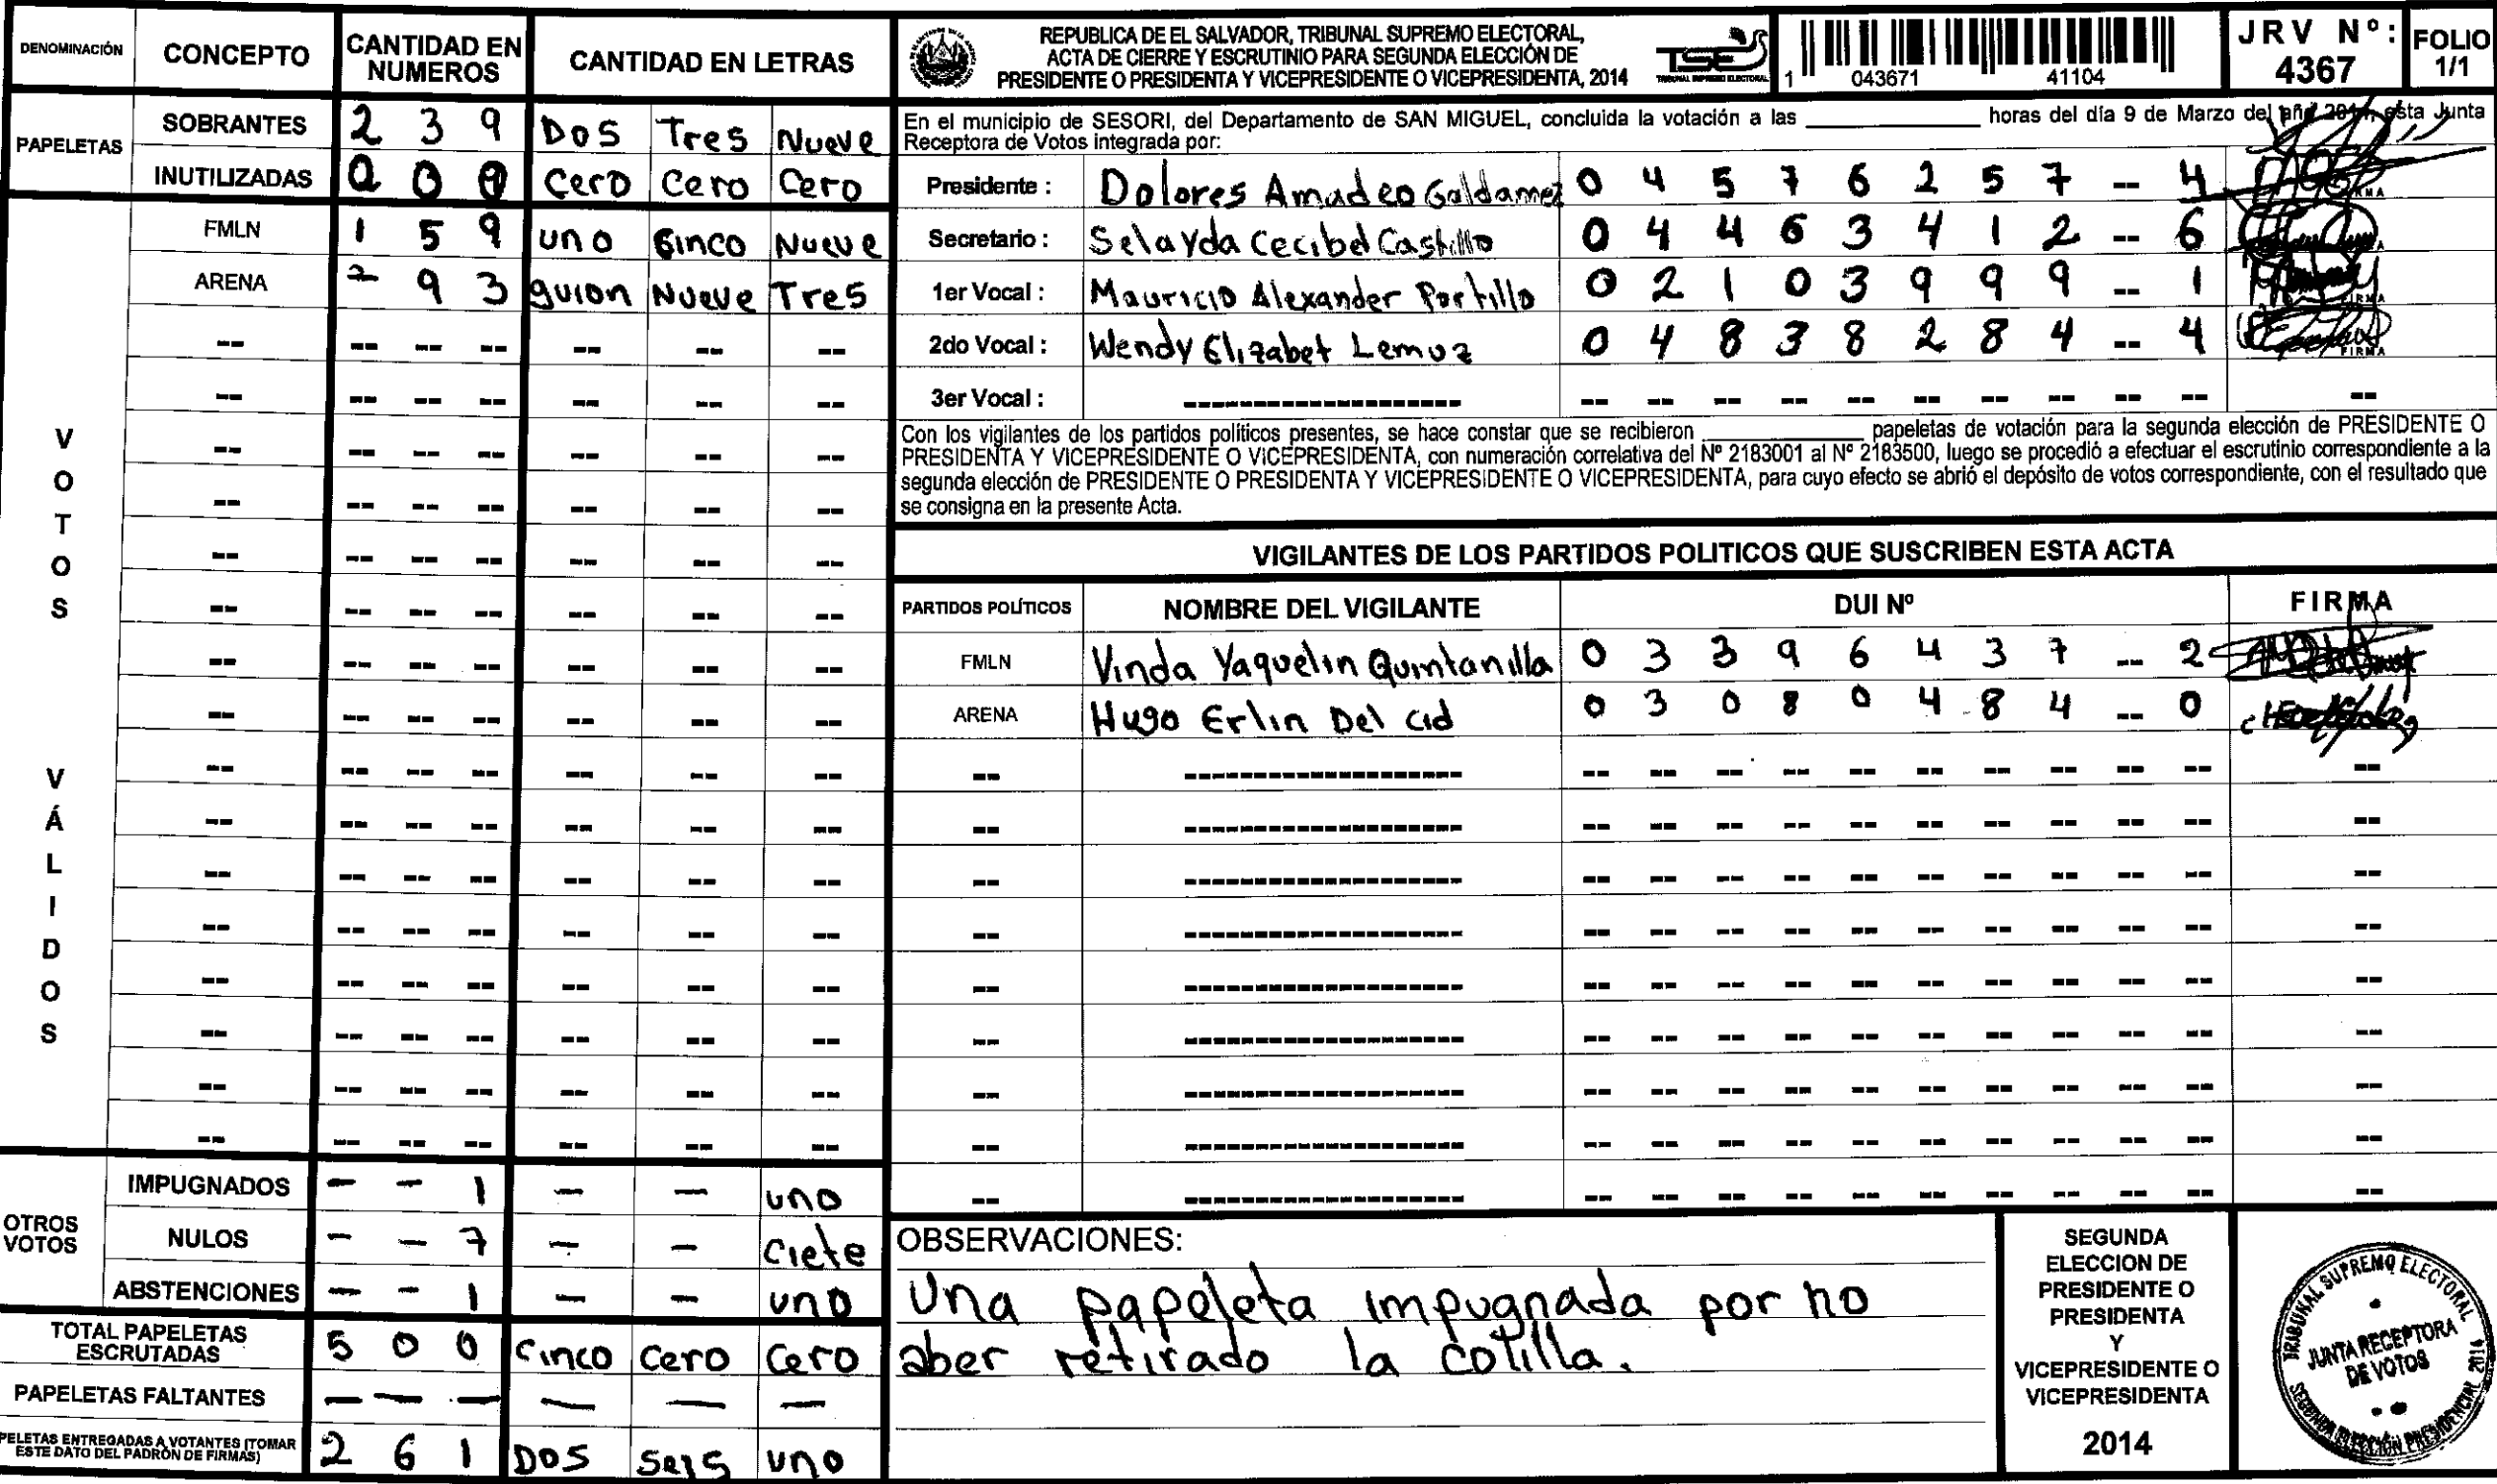 DENOMINACIÓN CONCEPTO CANTIDAD EN NUMEROS CANTIDAD EN LETRAS
PAPELETAS
SOBRANTES 2 3 9 Dos Tres Nueve
INUTILIZADAS 0 0 0 Cero Cero Cero
VOTOS VÁLIDOS
FMLN 1 5 9 uno Cinco Nueve
ARENA - 9 3 guion Nueve Tres
OTROS VOTOS
IMPUGNADOS - - 1 - - uno
NULOS - - 7 - - Ciete
ABSTENCIONES - - 1 - - uno
TOTAL PAPELETAS ESCRUTADAS 5 0 0 Cinco Cero Cero
PAPELETAS FALTANTES - - - - - -
PELETAS ENTREGADAS A VOTANTES (TOMAR ESTE DATO DEL PADRÓN DE FIRMAS) 2 6 1 Dos Seis uno
REPUBLICA DE EL SALVADOR, TRIBUNAL SUPREMO ELECTORAL,
ACTA DE CIERRE Y ESCRUTINIO PARA SEGUNDA ELECCIÓN DE
PRESIDENTE O PRESIDENTA Y VICEPRESIDENTE O VICEPRESIDENTA, 2014
TSE
TRIBUNAL SUPREMO ELECTORAL
1 043671 41104
JRV Nº: 4367
FOLIO 1/1
En el municipio de SESORI, del Departamento de SAN MIGUEL, concluida la votación a las ____ horas del día 9 de Marzo del año 2014, esta Junta
Receptora de Votos integrada por:
Presidente : Dolores Amadeo Galdamez 0 4 5 7 6 2 5 7 -- 4
Secretario : Selayda Cecibel Castillo 0 4 4 6 3 4 1 2 -- 6
1er Vocal : Mauricio Alexander Portillo 0 2 1 0 3 9 9 9 -- 1
FIRMA
2do Vocal : Wendy Elizabet Lemuz 0 4 8 3 8 2 8 4 -- 4
FIRMA
3er Vocal :
Con los vigilantes de los partidos políticos presentes, se hace constar que se recibieron ____ papeletas de votación para la segunda elección de PRESIDENTE O
PRESIDENTA Y VICEPRESIDENTE O VICEPRESIDENTA, con numeración correlativa del Nº 2183001 al Nº 2183500, luego se procedió a efectuar el escrutinio correspondiente a la
segunda elección de PRESIDENTE O PRESIDENTA Y VICEPRESIDENTE O VICEPRESIDENTA, para cuyo efecto se abrió el depósito de votos correspondiente, con el resultado que
se consigna en la presente Acta.
VIGILANTES DE LOS PARTIDOS POLITICOS QUE SUSCRIBEN ESTA ACTA
PARTIDOS POLÍTICOS NOMBRE DEL VIGILANTE DUI Nº FIRMA
FMLN Vinda Yaquelin Quintanilla 0 3 3 9 6 4 3 7 -- 2
ARENA Hugo Erlin Del Cid 0 3 0 8 0 4 8 4 -- 0
OBSERVACIONES:
Una papeleta impugnada por no
aber retirado la cotilla.
SEGUNDA
ELECCION DE
PRESIDENTE O
PRESIDENTA
Y
VICEPRESIDENTE O
VICEPRESIDENTA
2014
TRIBUNAL SUPREMO ELECTORAL
JUNTA RECEPTORA
DE VOTOS
SEGUNDA ELECCIÓN PRESIDENCIAL 2014